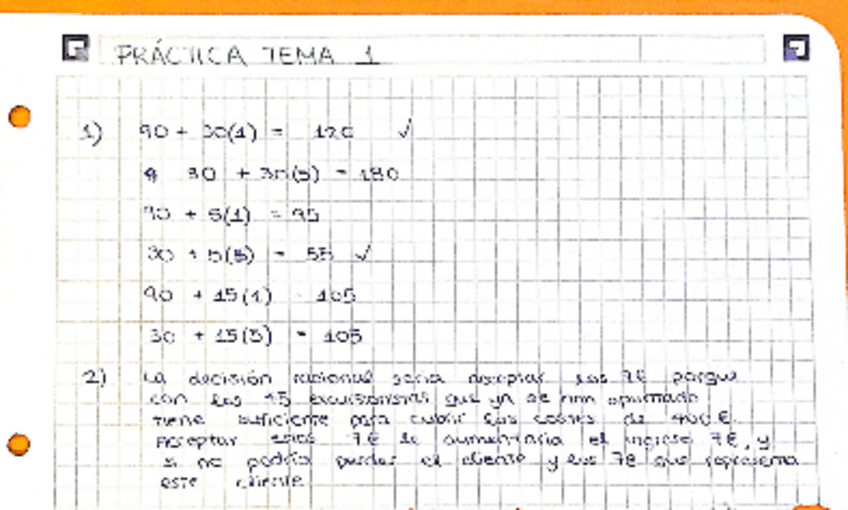 PRÁCTICA TEMA 1
1) 90 + 30(1) = 120 ✓
30 + 30(5) = 180
90 + 5(1) = 95
30 + 5(5) = 55 ✓
90 + 15(1) = 105
30 + 15(5) = 105
2) La decisión racional seria acceptar los 7€ porque
con los 15 excursionistas que ya se han apuntado
tiene suficiente para cubrir los costes de 400€.
Acceptar estos 7€ le aumentaria el ingreso 7€, y
si no podría perder el cliente y los 7€ que representa
este cliente